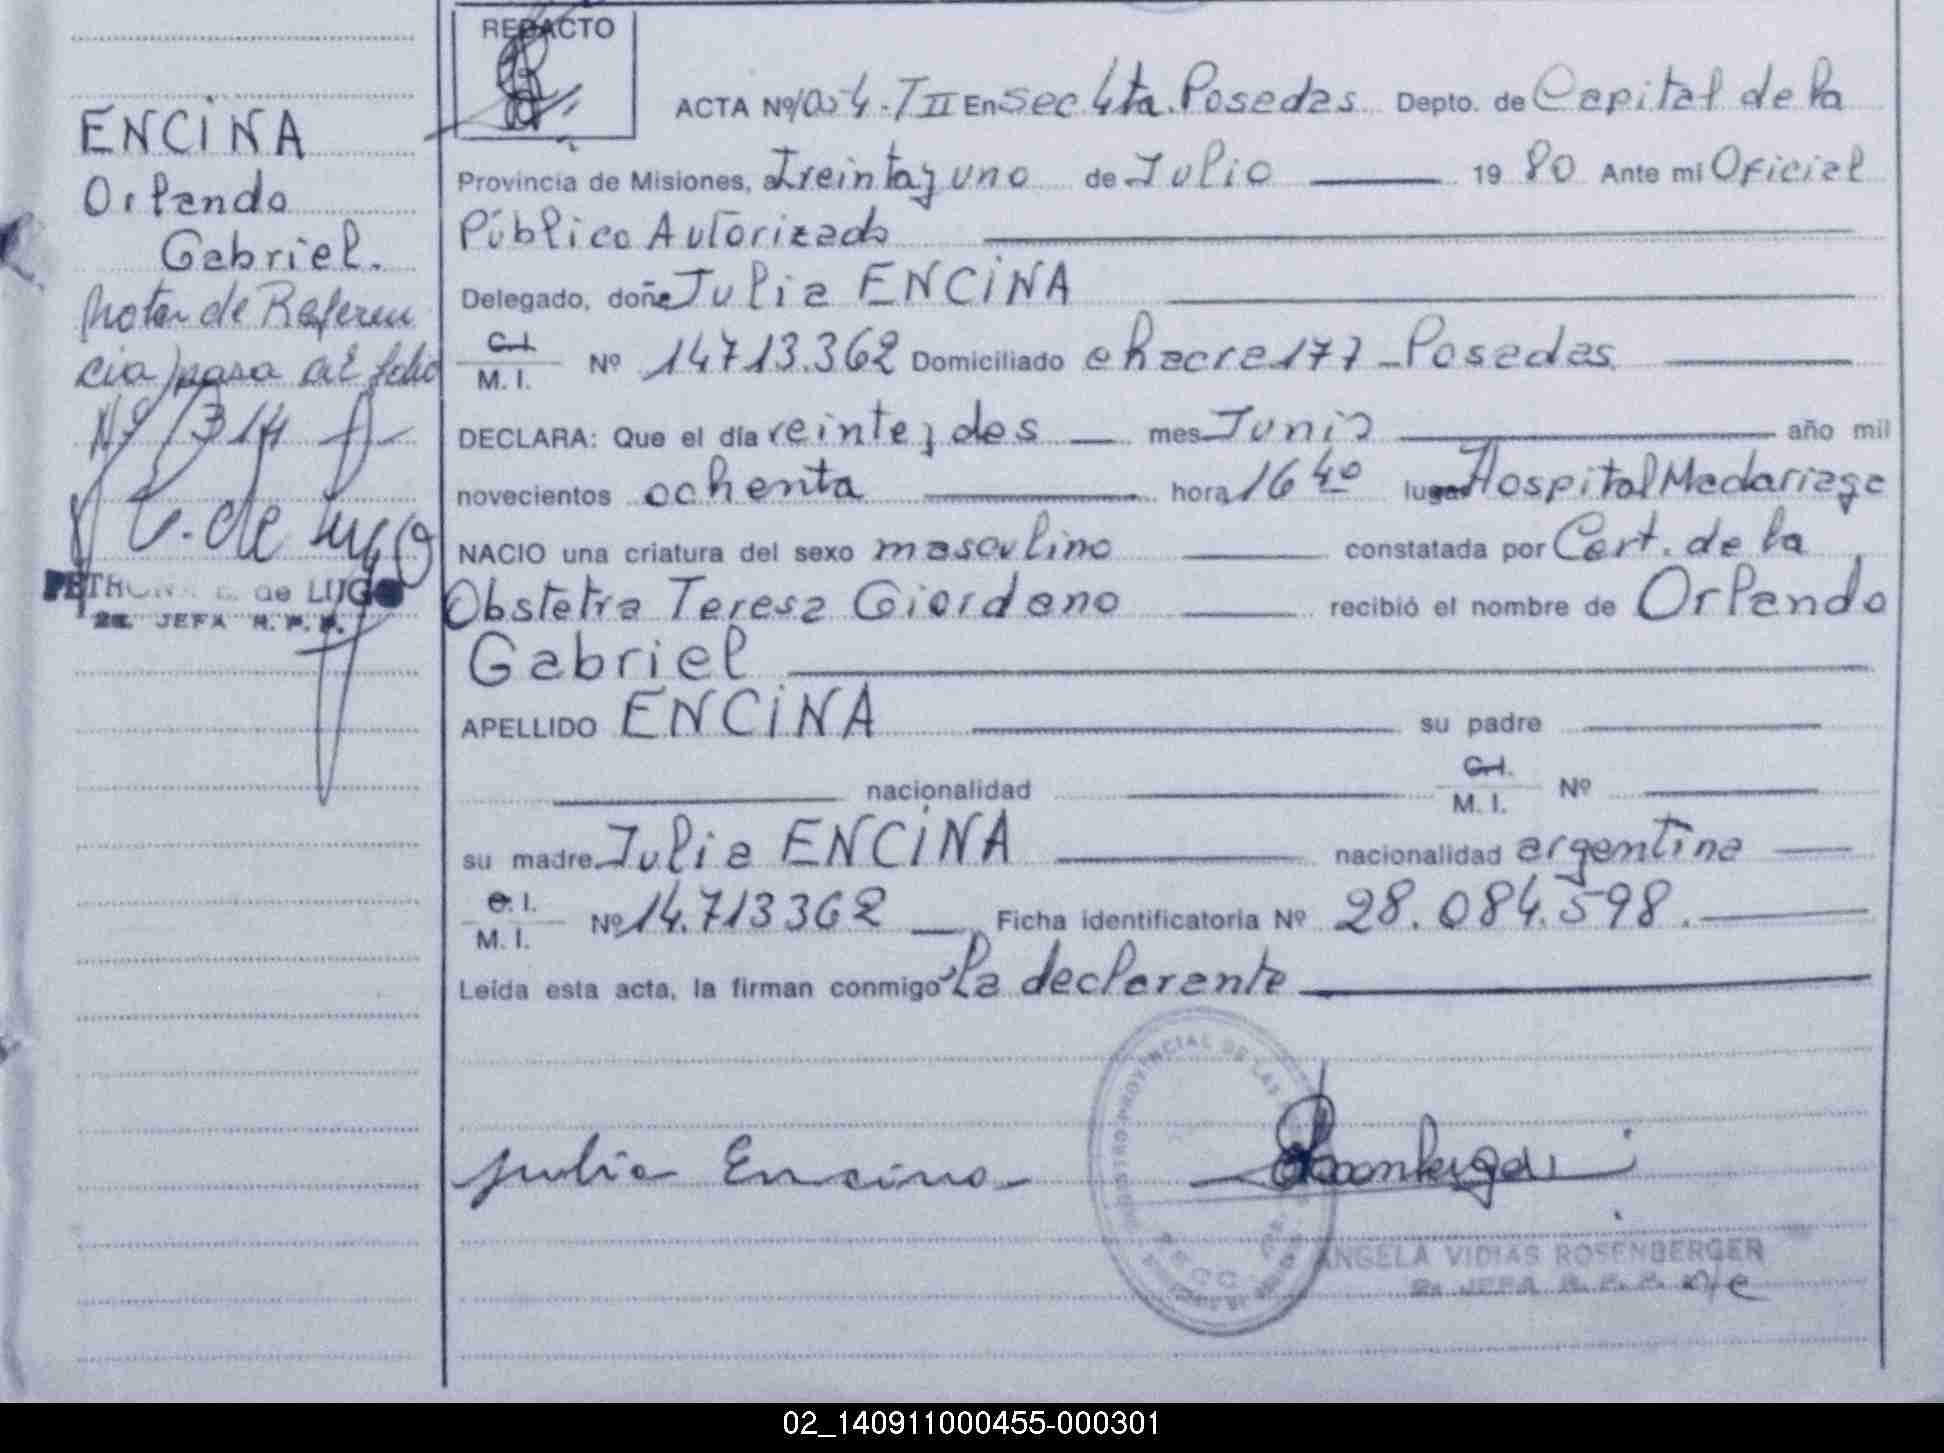 ENCINA
Orlando
Gabriel.
Nota de Referen
cia) pasa al folio
Nº 1314
PETRONA E. de LUGO
2a. JEFA R.P.P.
REDACTO
ACTA Nº 1054-T II En Sec 4ta. Posadas Depto. de Capital de la
Provincia de Misiones, a treinta y uno de Julio 19 80 Ante mi Oficial
Público Autorizado
Delegado, doña Julia ENCINA
C.I.
M. I. Nº 14713.362 Domiciliado chacra 177 - Posadas
DECLARA: Que el día veinte y dos mes Junio año mil
novecientos ochenta hora 16 40 lugar Hospital Madariaga
NACIO una criatura del sexo masculino constatada por Cert. de la
Obstetra Teresa Giordano recibió el nombre de Orlando
Gabriel
APELLIDO ENCINA su padre
nacionalidad C.I.
M. I. Nº
su madre Julia ENCINA nacionalidad argentina
C. I.
M. I. Nº 14.713362 Ficha identificatoria Nº 28.084.598.
Leída esta acta, la firman conmigo la declarante
Julia Encina
ANGELA VIDIAS ROSENBERGER
2a. JEFA R. P. P.
02_140911000455-000301